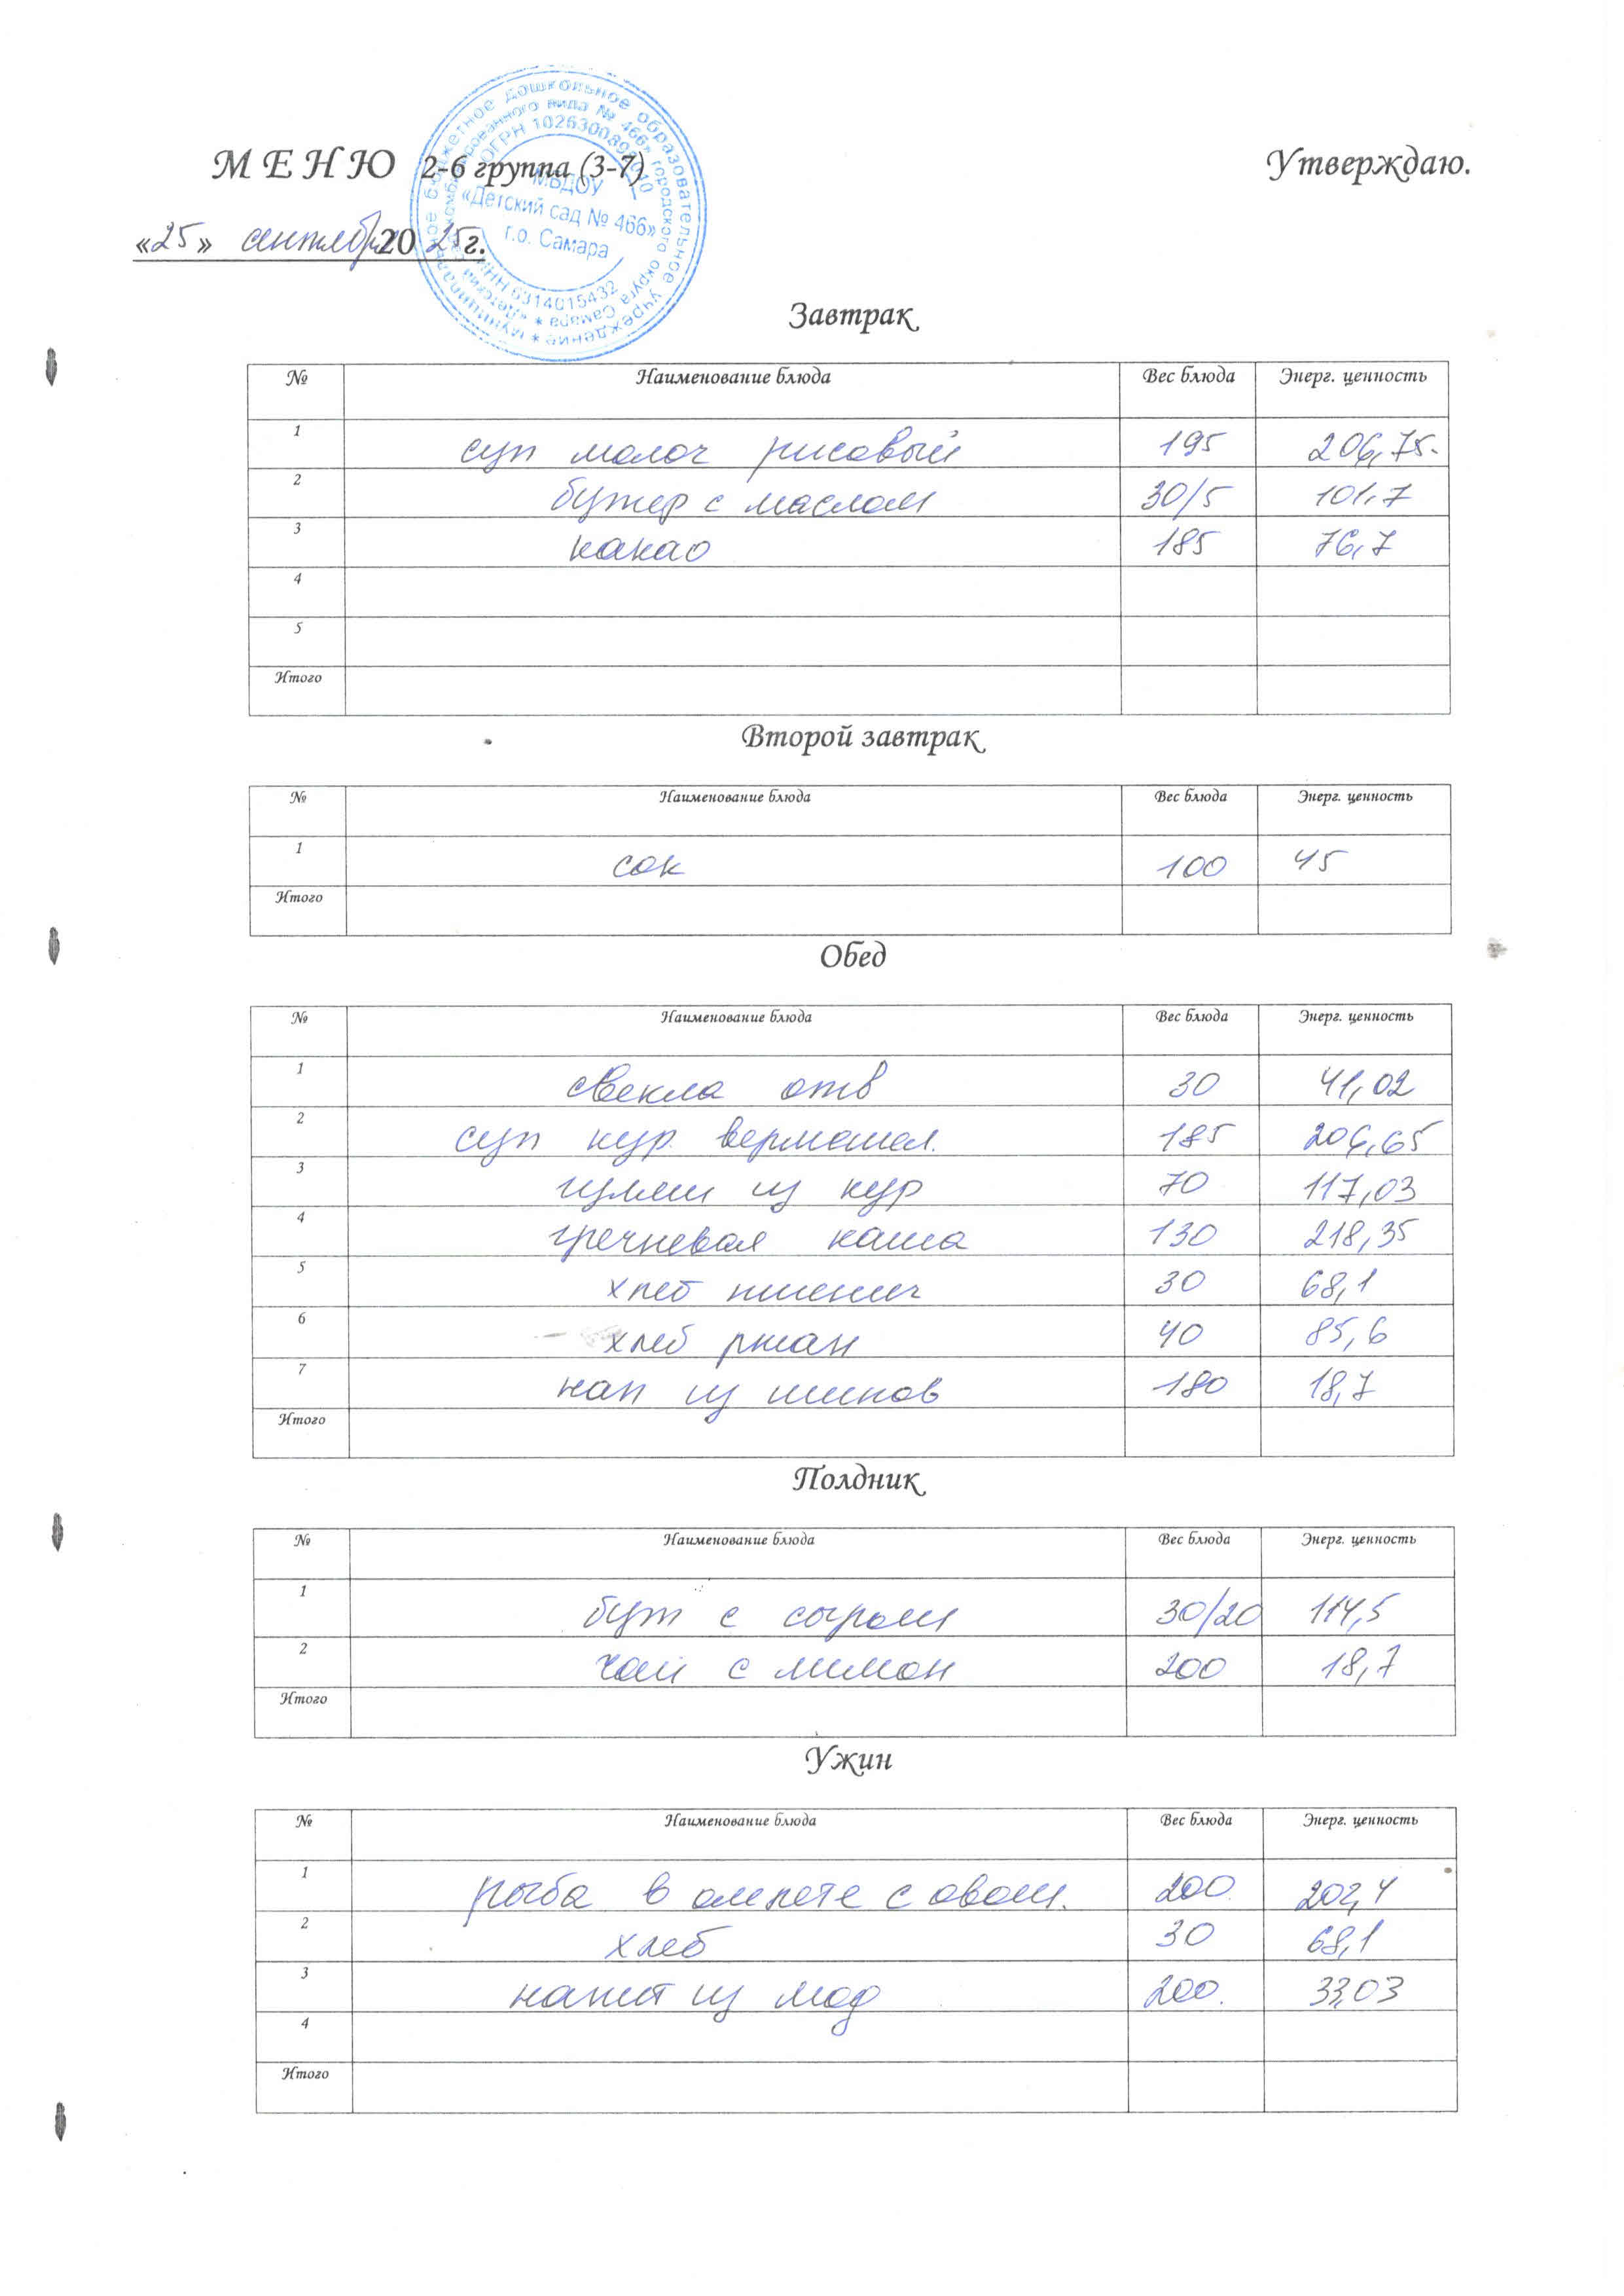 М Е Н Ю 2-6 группа (3-7) Утверждаю.
«25» сентября 2025г.
МБДОУ
«Детский сад № 466»
г.о. Самара
ИНН 6314015432
Завтрак
№ Наименование блюда Вес блюда Энерг. ценность
1 суп молоч рисовый 195 206,75.
2 бутер с маслом 30/5 101,7
3 какао 185 76,7
4
5
Итого
Второй завтрак
№ Наименование блюда Вес блюда Энерг. ценность
1 сок 100 45
Итого
Обед
№ Наименование блюда Вес блюда Энерг. ценность
1 свекла отв 30 41,02
2 суп кур вермишел. 185 206,65
3 гуляш из кур 70 117,03
4 гречневая каша 130 218,35
5 хлеб пшенич 30 68,1
6 хлеб ржан 40 85,6
7 нап из шипов 180 18,7
Итого
Полдник
№ Наименование блюда Вес блюда Энерг. ценность
1 бут с сыром 30/20 114,5
2 чай с лимон 200 18,7
Итого
Ужин
№ Наименование блюда Вес блюда Энерг. ценность
1 рыба в омлете с овощ. 200 202,4
2 хлеб 30 68,1
3 напит из 200. 33,03
4
Итого